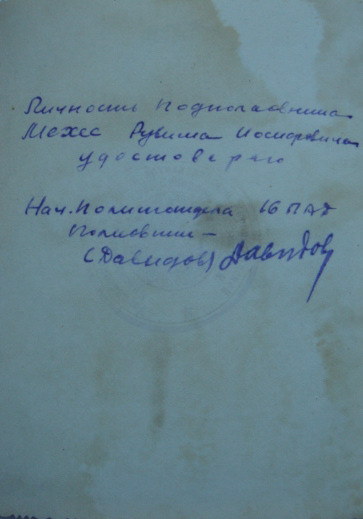 Личность Подполковника
Мехес Рувима Иосифовича
удостоверяю
Нач. Политотдела 16 ПАД
Полковник –
(Давидов) Давидов